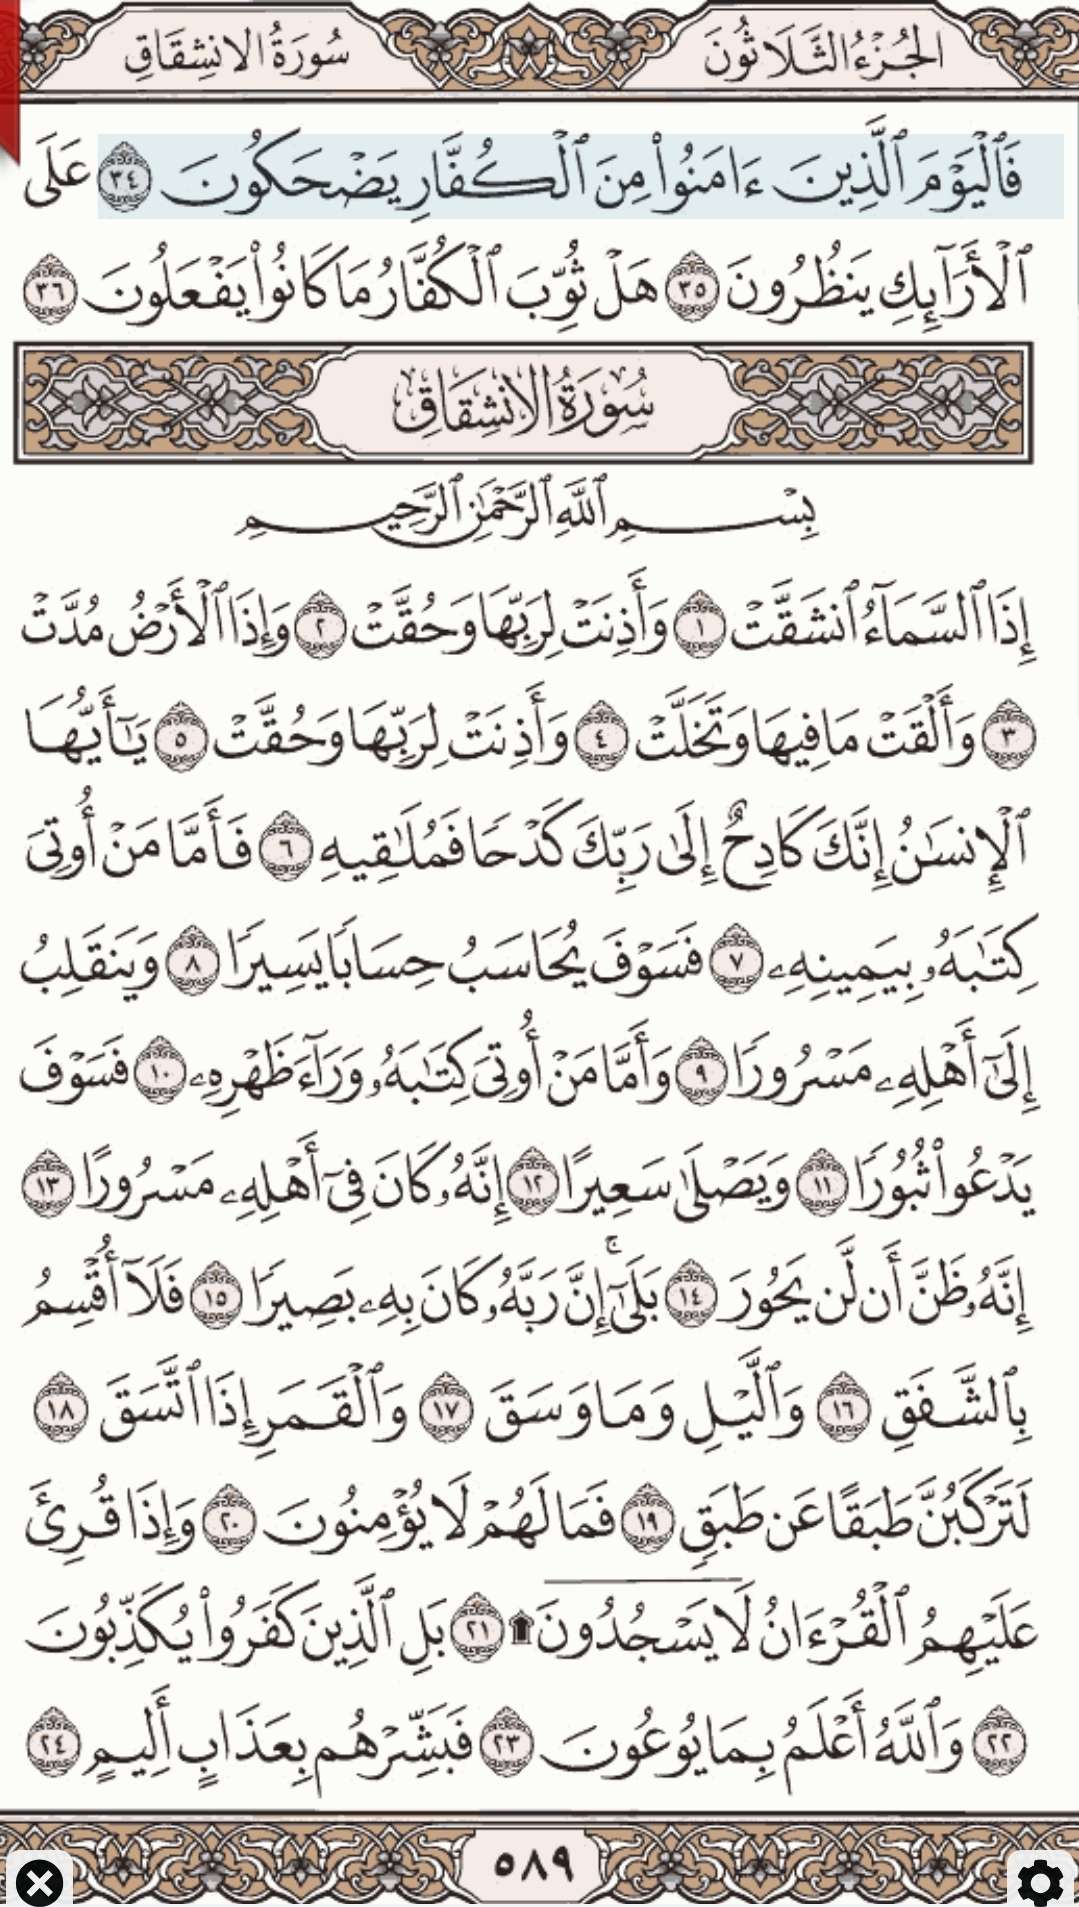 الجُزْءُ الثَّلَاثُونَ
سُورَةُ الانشِقَاقِ
فَٱلْيَوْمَ ٱلَّذِينَ ءَامَنُوا۟ مِنَ ٱلْكُفَّارِ يَضْحَكُونَ ٣٤ عَلَى
ٱلْأَرَآئِكِ يَنظُرُونَ ٣٥ هَلْ ثُوِّبَ ٱلْكُفَّارُ مَا كَانُوا۟ يَفْعَلُونَ ٣٦
سُورَةُ الانشِقَاقِ
بِسْمِ ٱللَّهِ ٱلرَّحْمَٰنِ ٱلرَّحِيمِ
إِذَا ٱلسَّمَآءُ ٱنشَقَّتْ ١ وَأَذِنَتْ لِرَبِّهَا وَحُقَّتْ ٢ وَإِذَا ٱلْأَرْضُ مُدَّتْ
٣ وَأَلْقَتْ مَا فِيهَا وَتَخَلَّتْ ٤ وَأَذِنَتْ لِرَبِّهَا وَحُقَّتْ ٥ يَٰٓأَيُّهَا
ٱلْإِنسَٰنُ إِنَّكَ كَادِحٌ إِلَىٰ رَبِّكَ كَدْحًا فَمُلَٰقِيهِ ٦ فَأَمَّا مَنْ أُوتِىَ
كِتَٰبَهُۥ بِيَمِينِهِۦ ٧ فَسَوْفَ يُحَاسَبُ حِسَابًا يَسِيرًا ٨ وَيَنقَلِبُ
إِلَىٰٓ أَهْلِهِۦ مَسْرُورًا ٩ وَأَمَّا مَنْ أُوتِىَ كِتَٰبَهُۥ وَرَآءَ ظَهْرِهِۦ ١٠ فَسَوْفَ
يَدْعُوا۟ ثُبُورًا ١١ وَيَصْلَىٰ سَعِيرًا ١٢ إِنَّهُۥ كَانَ فِىٓ أَهْلِهِۦ مَسْرُورًا ١٣
إِنَّهُۥ ظَنَّ أَن لَّن يَحُورَ ١٤ بَلَىٰٓۚ إِنَّ رَبَّهُۥ كَانَ بِهِۦ بَصِيرًا ١٥ فَلَآ أُقْسِمُ
بِٱلشَّفَقِ ١٦ وَٱلَّيْلِ وَمَا وَسَقَ ١٧ وَٱلْقَمَرِ إِذَا ٱتَّسَقَ ١٨
لَتَرْكَبُنَّ طَبَقًا عَن طَبَقٍ ١٩ فَمَا لَهُمْ لَا يُؤْمِنُونَ ٢٠ وَإِذَا قُرِئَ
عَلَيْهِمُ ٱلْقُرْءَانُ لَا يَسْجُدُونَ ۩ ٢١ بَلِ ٱلَّذِينَ كَفَرُوا۟ يُكَذِّبُونَ
٢٢ وَٱللَّهُ أَعْلَمُ بِمَا يُوعُونَ ٢٣ فَبَشِّرْهُم بِعَذَابٍ أَلِيمٍ ٢٤
٥٨٩